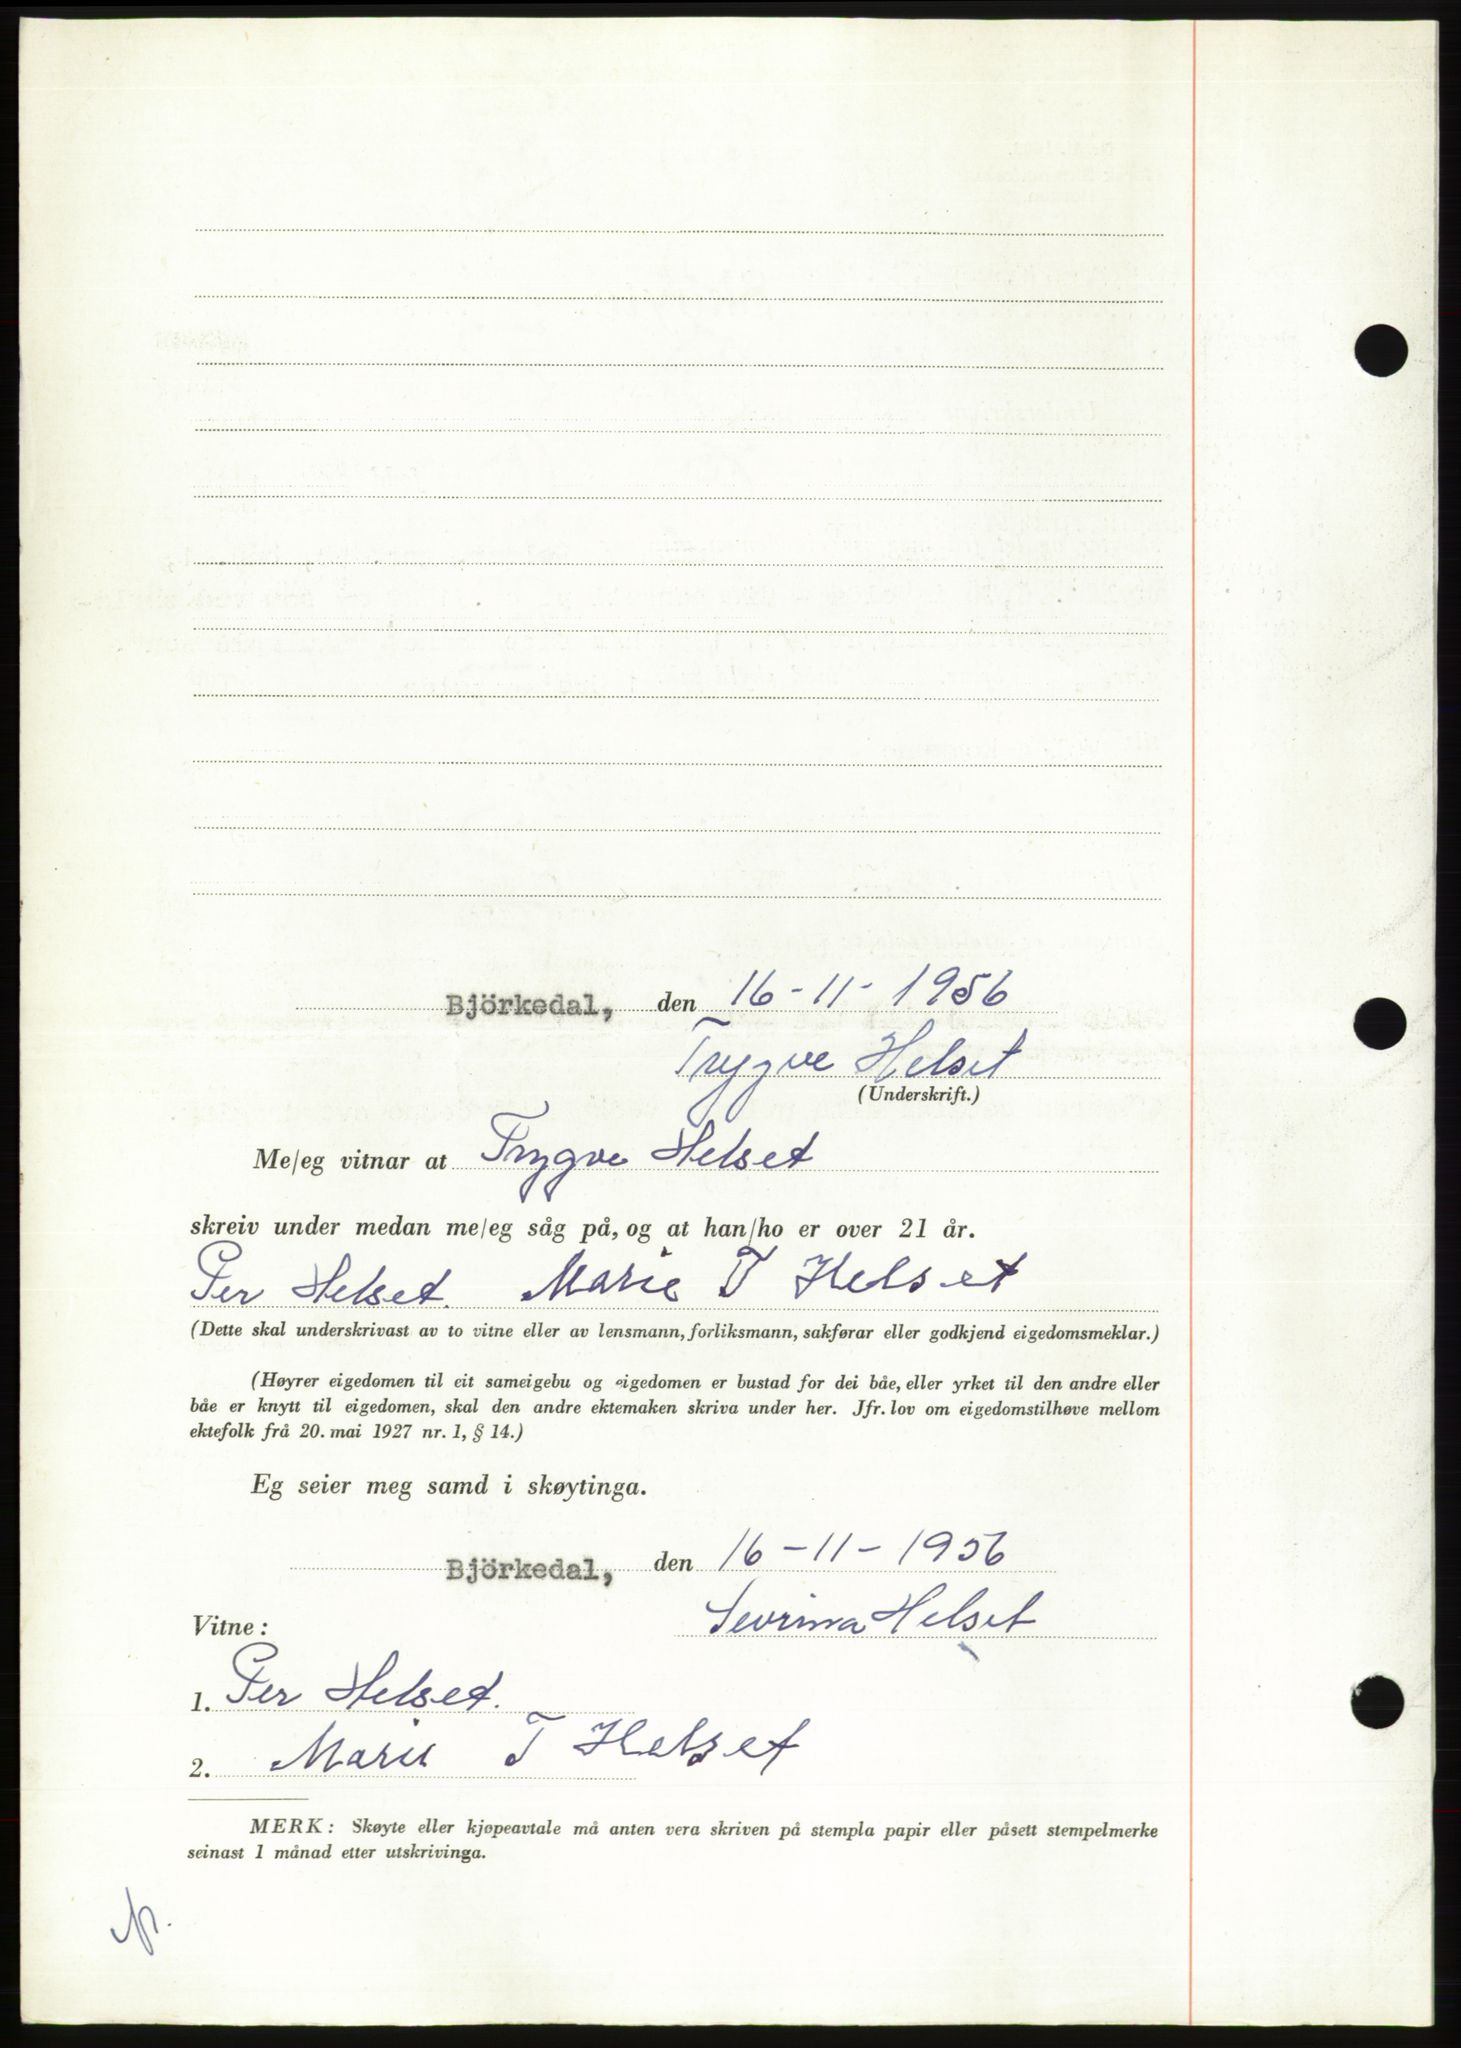 Björkedal, den 16-11-1956
Trygve Helset
(Underskrift.)
Me/eg vitnar at Trygve Helset
skreiv under medan me/eg såg på, og at han/ho er over 21 år.
Per Helset. Marie T Helset
(Dette skal underskrivast av to vitne eller av lensmann, forliksmann, sakførar eller godkjend eigedomsmeklar.)
(Høyrer eigedomen til eit sameigebu og eigedomen er bustad for dei båe, eller yrket til den andre eller
båe er knytt til eigedomen, skal den andre ektemaken skriva under her. Jfr. lov om eigedomstilhøve mellom
ektefolk frå 20. mai 1927 nr. 1, § 14.)
Eg seier meg samd i skøytinga.
Björkedal, den 16-11-1956
Vitne: Sevrina Helset
1. Per Helset.
2. Marie T Helset
MERK: Skøyte eller kjøpeavtale må anten vera skriven på stempla papir eller påsett stempelmerke
seinast 1 månad etter utskrivinga.